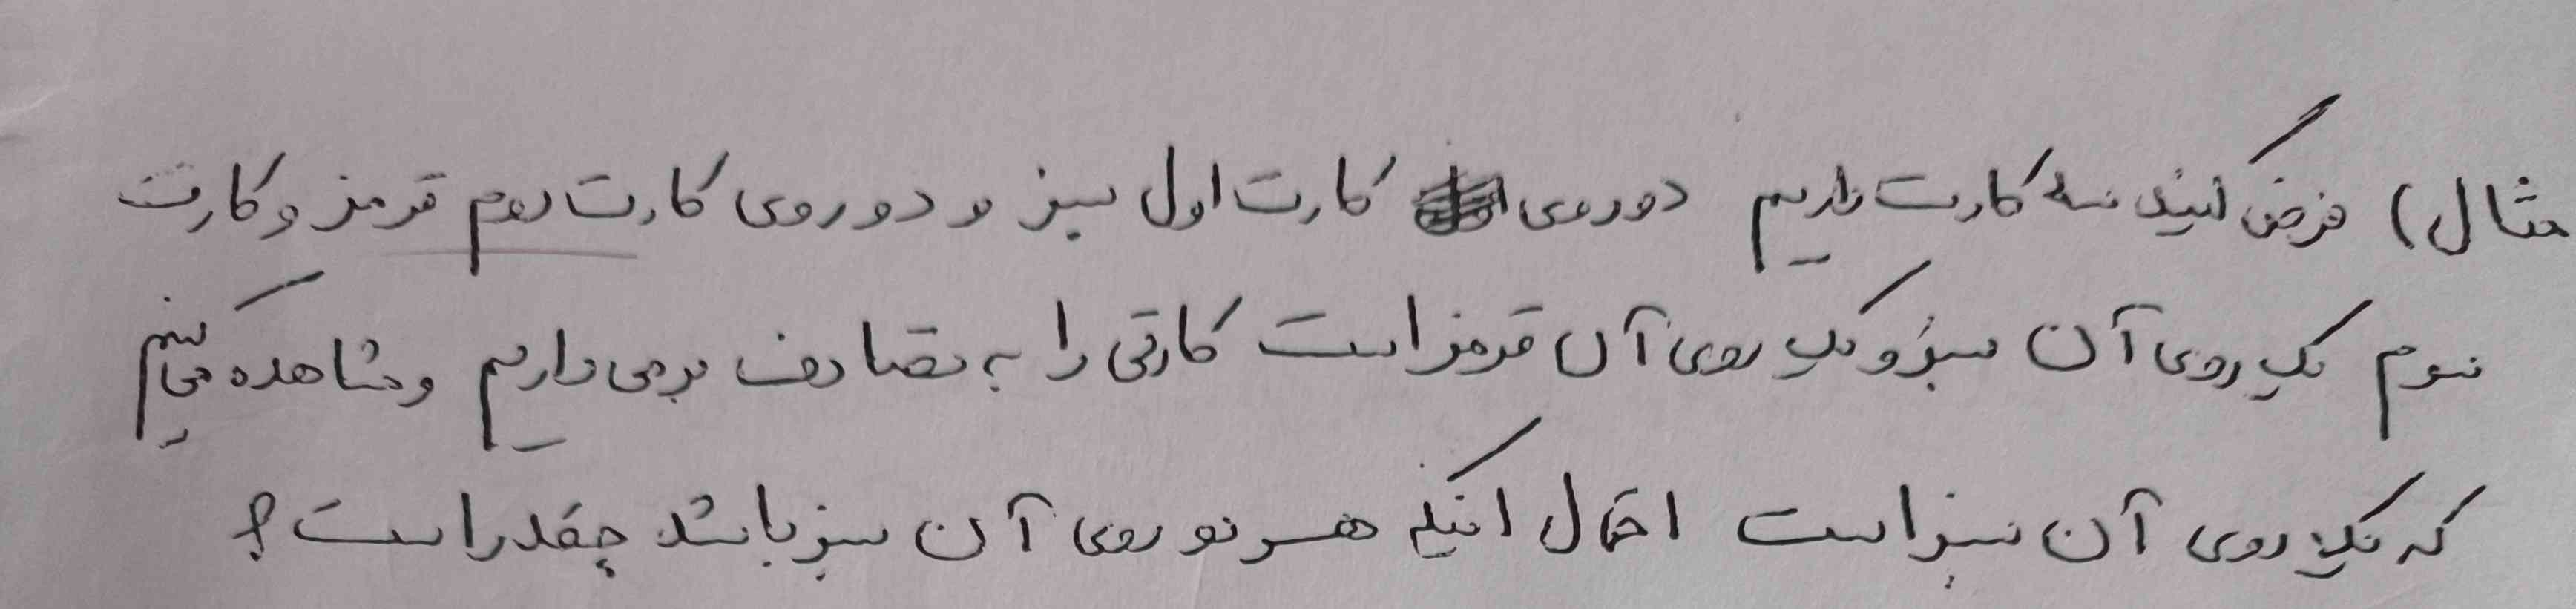 مثال) فرض کنید سه کارت داریم دوروی کارت اول سبز و دوروی کارت دوم قرمز و کارت
سوم یک روی آن سبز و یک روی آن قرمز است کارتی را به تصادف برمی داریم و مشاهده می کنیم
که یک روی آن سبز است احتمال اینکه هر دو روی آن سبز باشد چقدر است؟